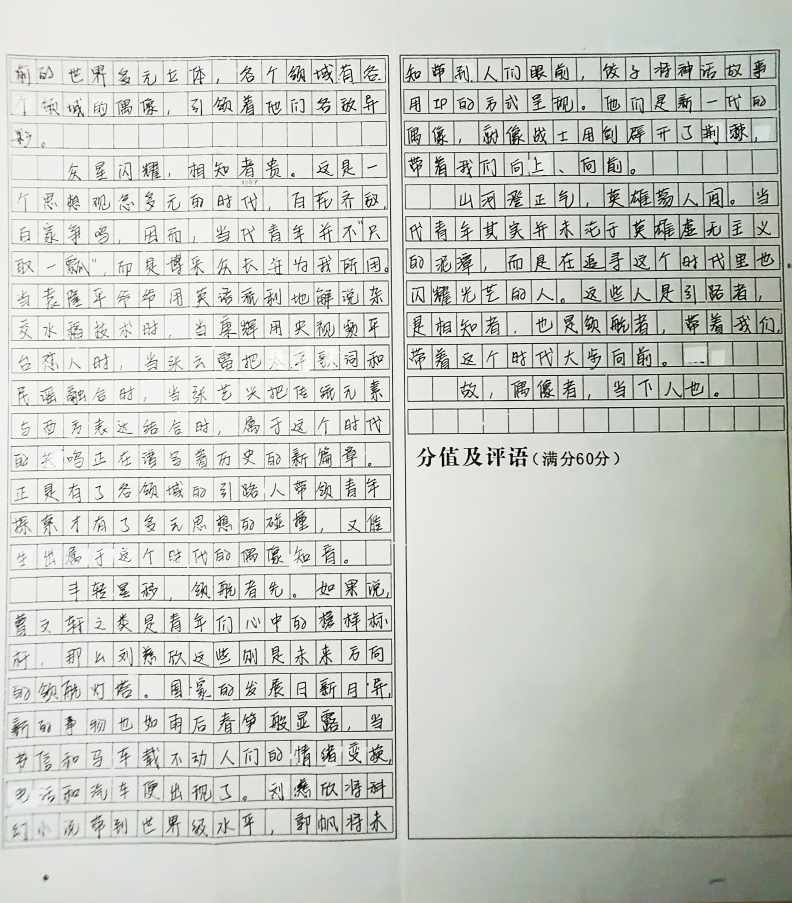 前的世界多元立体，各个领域有各
个领域的偶像，引领着他们各放异
彩。
众星闪耀，相知者贵。这是一
个思想观念多元的时代，百花齐放，
百家争鸣，因而，当代青年并不"只
取一瓢"，而是博采众长并为我所用。
当袁隆平爷爷用英语流利地解说杂
交水稻技术时，当康辉用央视频平
台恋人时，当张云雷把太平歌词和
民谣融合时，当张艺兴把传统元素
与西方表达结合时，属于这个时代
的共鸣正在谱写着历史的新篇章。
正是有了各领域的引路人带领青年
探索才有了多元思想的碰撞，又催
生出属于这个时代的偶像知音。
斗转星移，领航者先。如果说，
曹文轩之类是青年们心中的榜样标
杆，那么刘慈欣这些则是未来方向
的领航灯塔。国家的发展日新月异，
新的事物也如雨后春笋般显露，当
书信和马车载不动人们的情绪变换，
电话和汽车便出现了。刘慈欣将科
幻小说带到世界级水平，郭帆将未
知带到人们眼前，饺子将神话故事
用IP的方式呈现。他们是新一代的
偶像，就像战士用剑碎开了荆棘，
带着我们向上、向前。
山河澄正气，英雄荡人间。当
代青年其实并未沌于英雄虚无主义
的泥潭，而是在追寻这个时代里也
闪耀光芒的人。这些人是引路者，
是相知者，也是领航者，带着我们，
带着这个时代大步向前。
故，偶像者，当下人也。
分值及评语（满分60分）